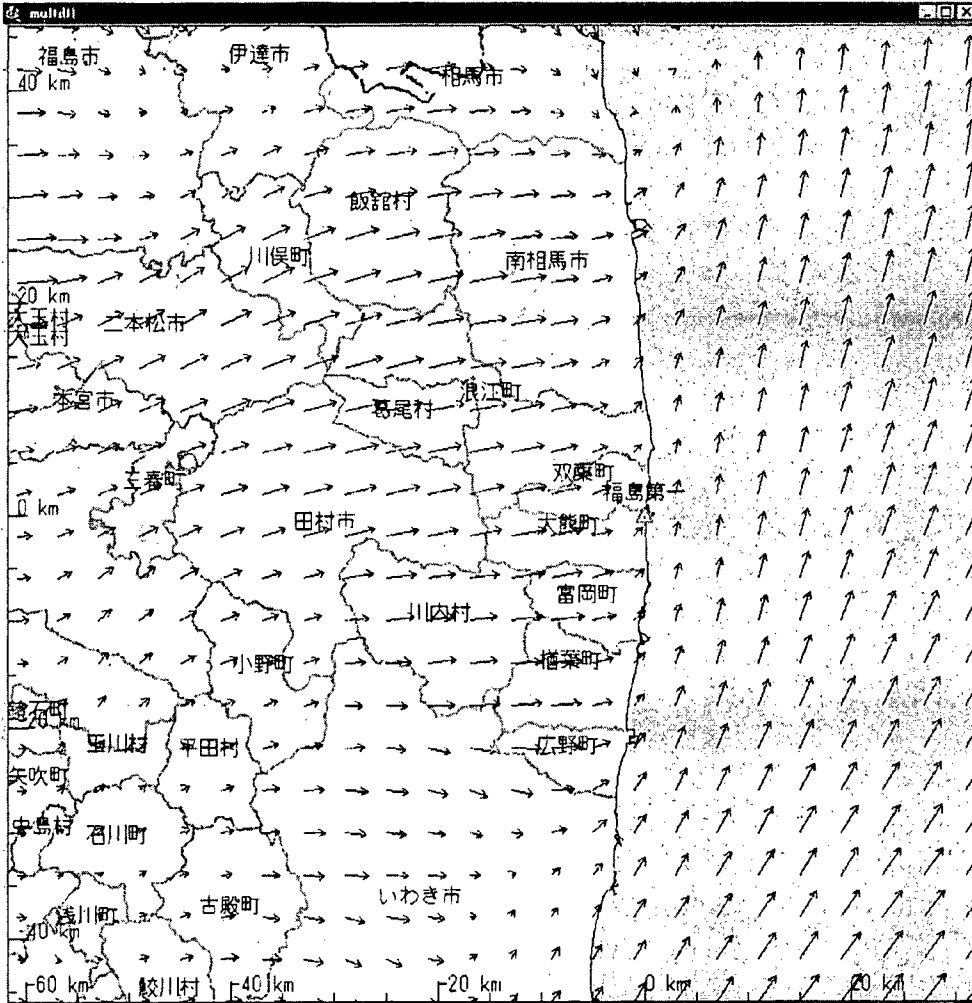 multdll
福島市
伊達市
相馬市
40 km
飯舘村
川俣町
南相馬市
20 km
大玉村
二本松市
大玉村
本宮市
浪江町
葛尾村
双葉町
三春町
福島第一
0 km
田村市
大熊町
富岡町
川内村
小野町
楢葉町
鏡石町
-20 km
玉川村
平田村
広野町
矢吹町
中島村
石川町
いわき市
古殿町
浅川町
-40 km
-60 km
鮫川村
-40 km
-20 km
0 km
20 km